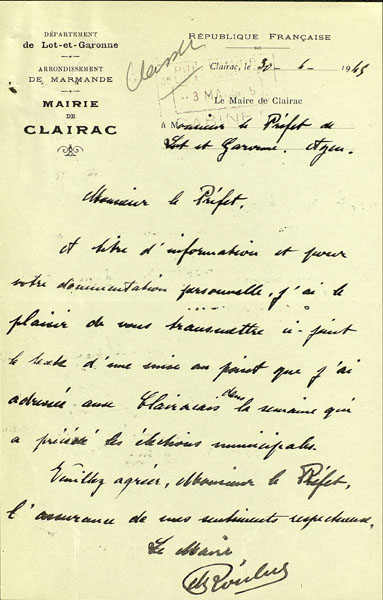 DÉPARTEMENT
de Lot-et-Garonne
ARRONDISSEMENT
DE MARMANDE
MAIRIE
DE
CLAIRAC
RÉPUBLIQUE FRANÇAISE
Classer
Clairac, le 30 - 4 - 1945
3 MAI
CABINET
Le Maire de Clairac
A Monsieur le Préfet de
Lot et Garonne. Agen.
Monsieur le Préfet,
A titre d'information et pour
votre documentation personnelle, j'ai le
plaisir de vous transmettre ci-joint
le texte d'une mise au point que j'ai
adressée aux Clairacais dans la semaine qui
a précédé les élections municipales.
Veuillez agréer, Monsieur le Préfet,
l'assurance de mes sentiments respectueux.
Le Maire